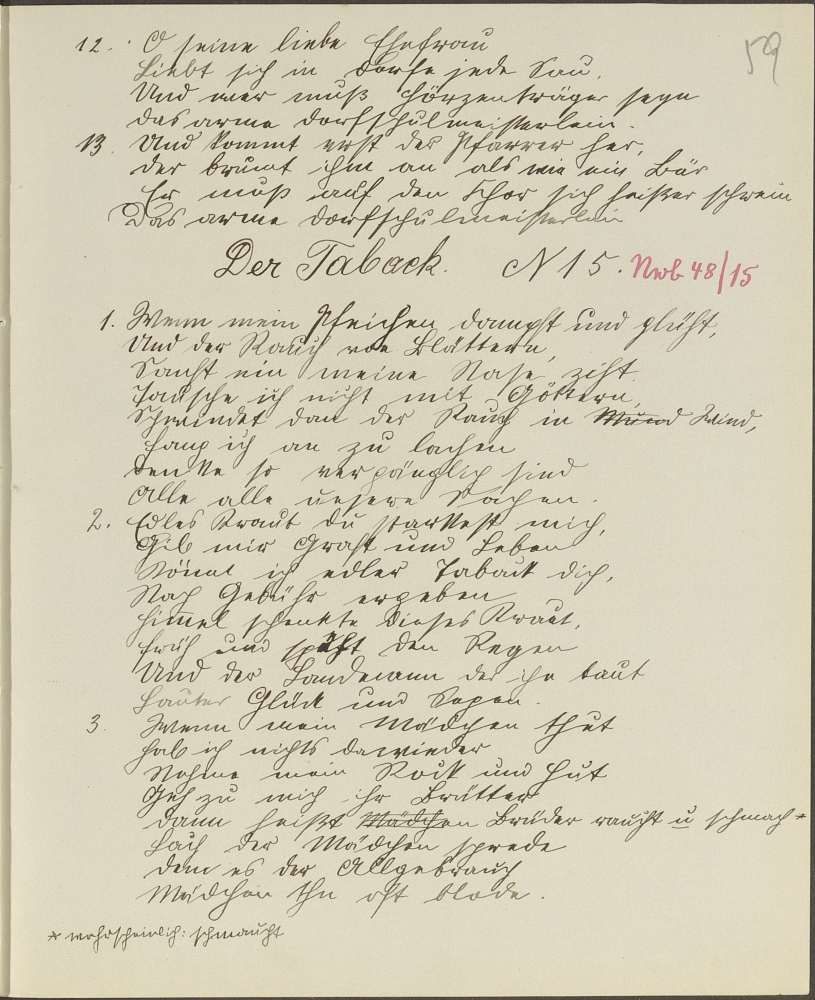 59
12. O seine liebe Ehefrau
Liebt sich in Dorfe jede Sau,
Und wer muß Hörzenträger seyn
das arme Dorfschulmeisterlein.
13. Und kommt erst der Pfarrer her,
der brumt ihm an als wie ein Bär
Er muß auf den Chor sich heißer schrein
Das arme Dorfschulmeisterlein
Der Taback. N 15. Nrb 48/15
1. Wenn mein Pfeichen dampft und glüht,
Und der Rauch von Blättern,
Sanft ein meine Nase ziht
Tausche ich nicht mit Göttern,
Schwindet dan der Rauch in Mund Wind,
Fang ich an zu lachen
denke so vergänglich sind
Alle alle unsere Sachen.
2. Edles Kraut du starkest mich,
Gib mir Graft und Leben
Könnt ich edler Taback dich,
Nach Gebühr ergeben
Himel schenkte dieses Kraut,
Früh und späht den Regen
Und der Landmann der ihn baut
Lauter Glück und Segen.
3. Wenn mein Mädchen thut
hab ich nichts dawieder
Nehme mein Rock und Hut
Geh zu mich ihr Brütter
dann heißt Mädchen Brüder raucht u schmach *
Lach der Mädchen sprede
denn es der Allgebrauch
Mädchen thu oft blöde.
* wahrscheinlich: schmaucht